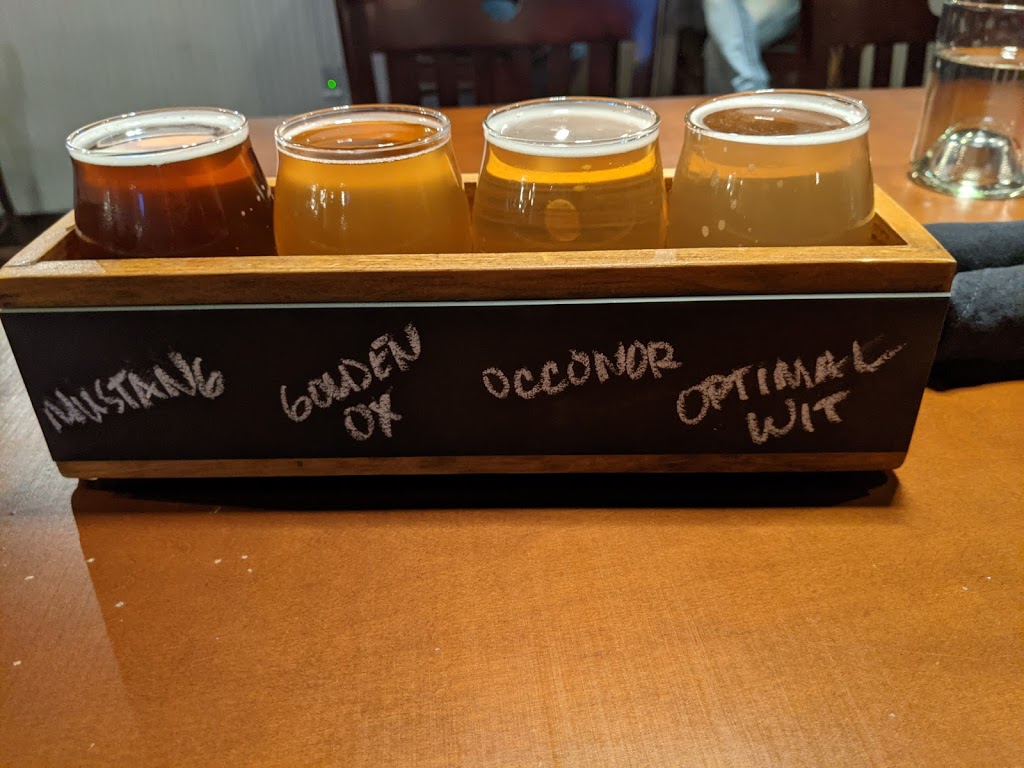 MUSTANG
GOLDEN
OX
OCCONOR
OPTIMAL
WIT